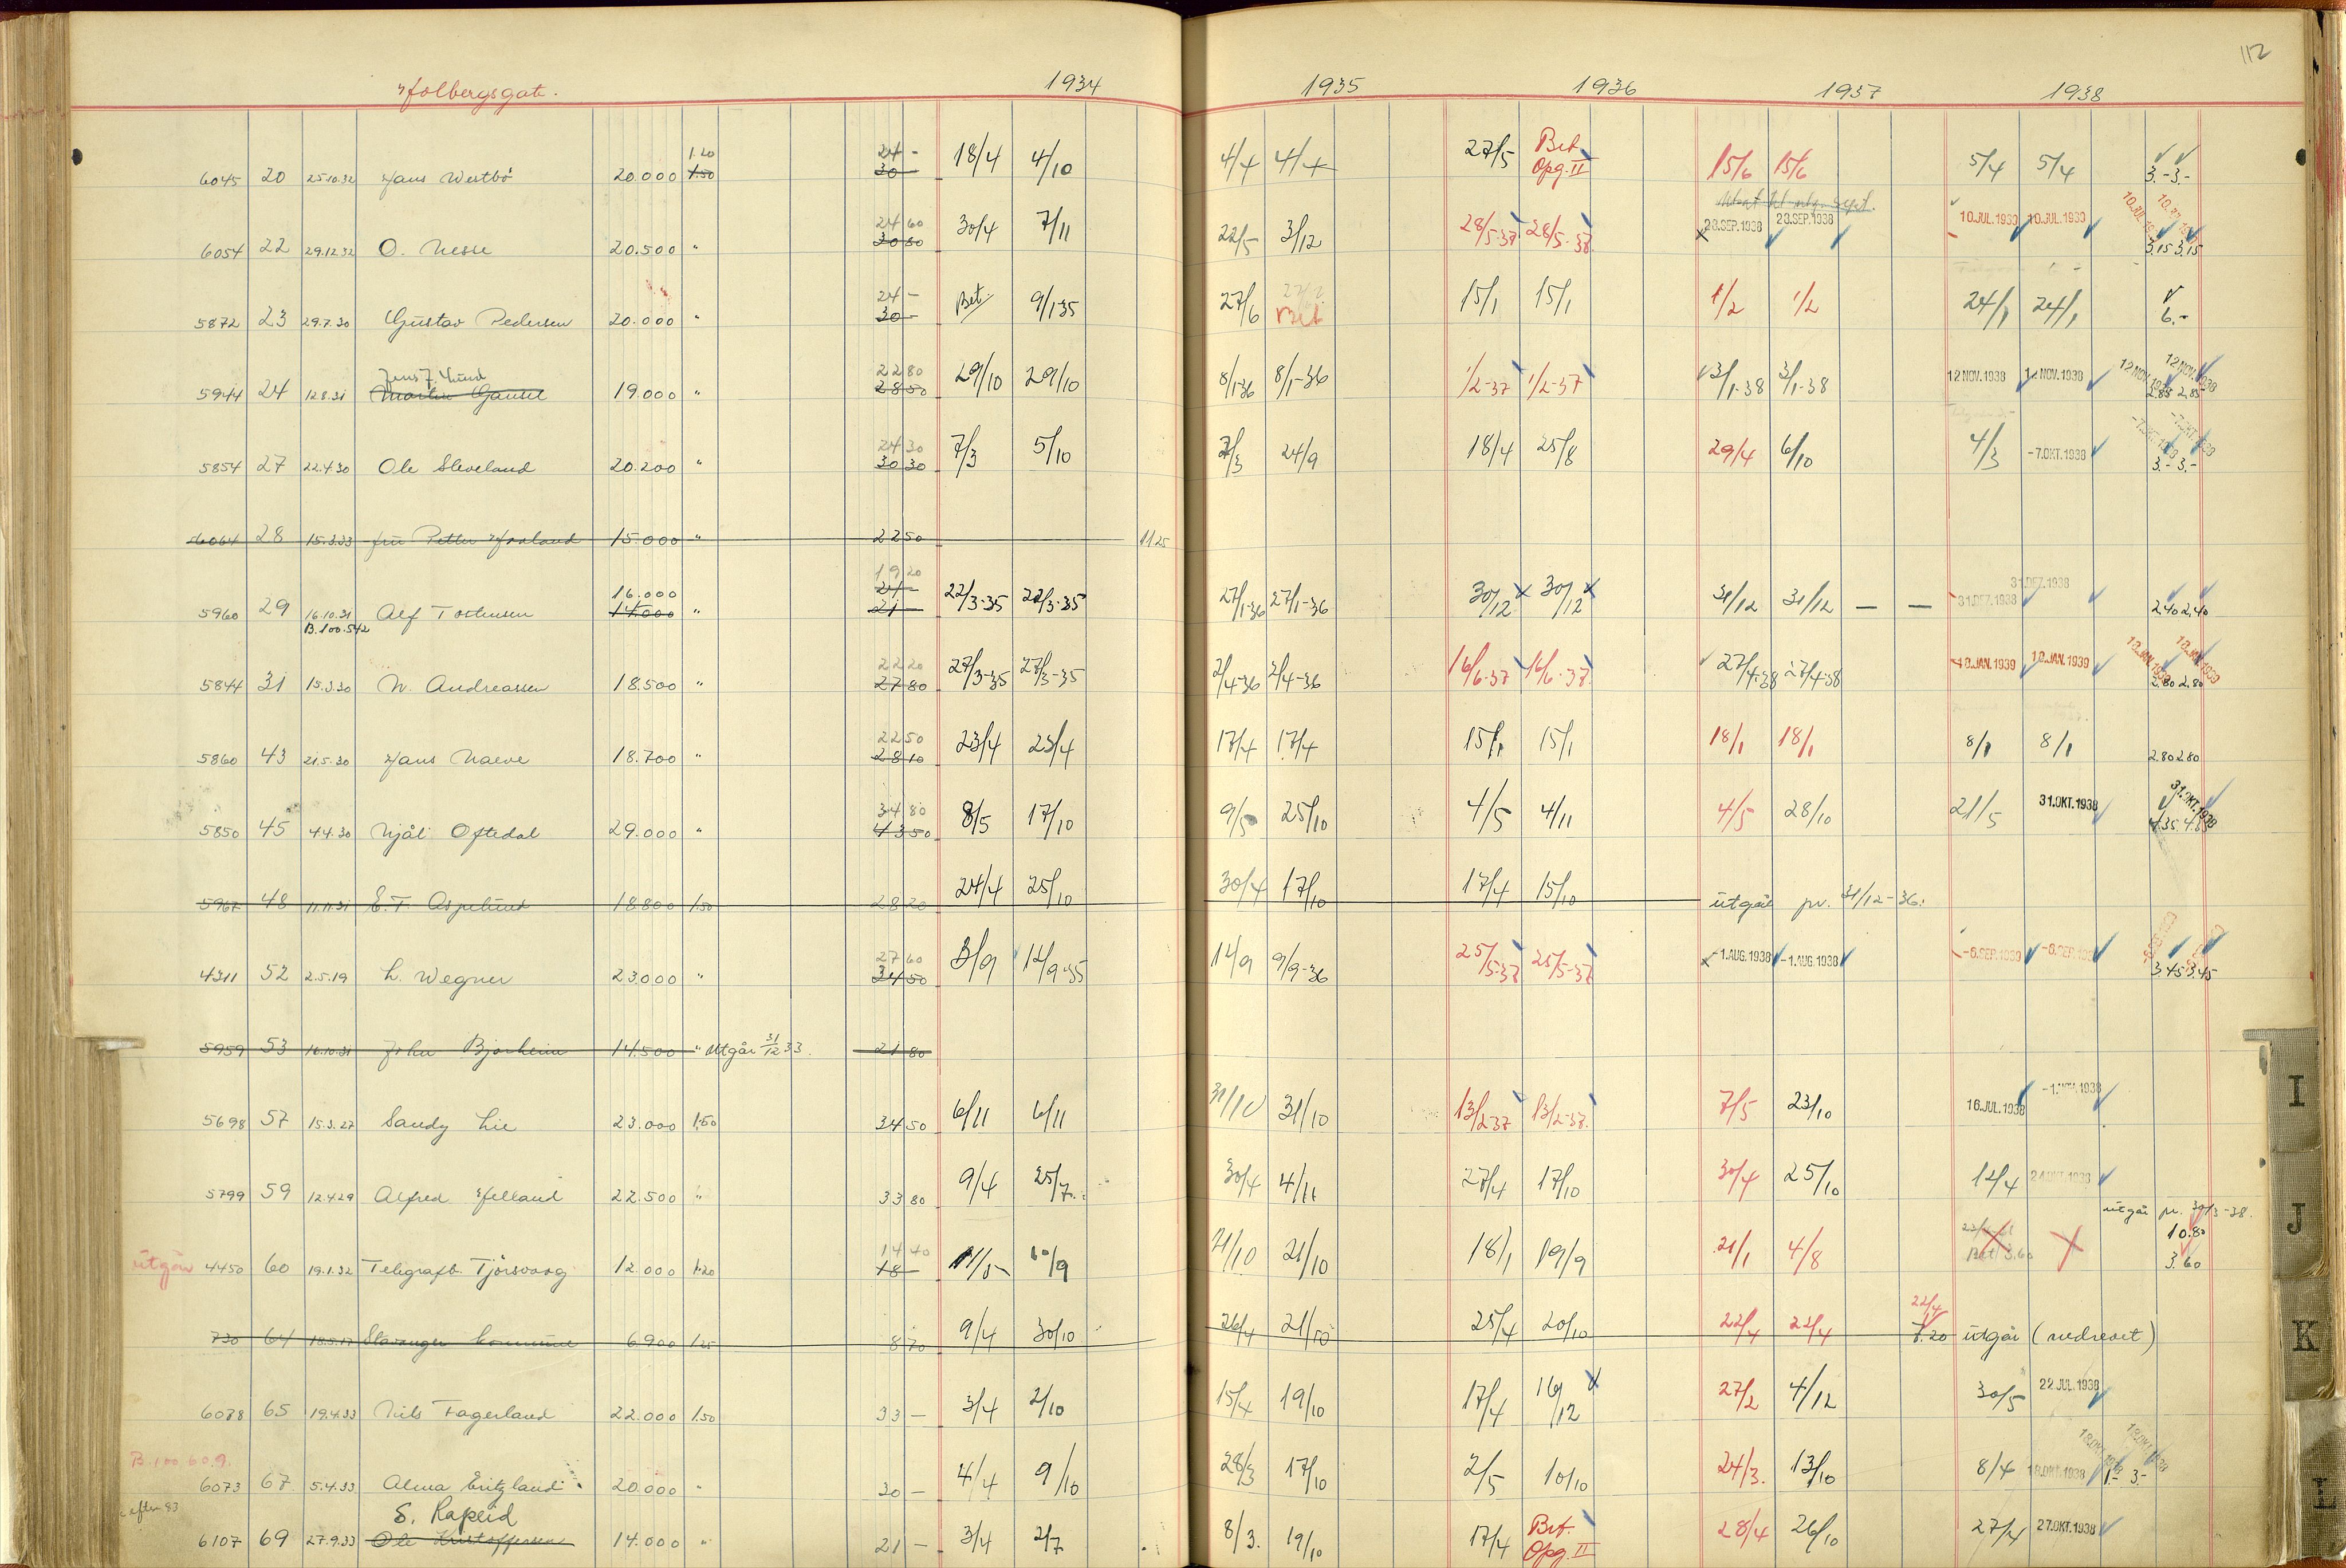 112
Holbergsgate. 1934 1935 1936 1937 1938
6045 20 25.10.32 Hans Westbö 20.000 1.20 1.50 24 - 30 - 18/4 4/10 4/4 4/4 27/5 Bet. Opg. II 15/6 15/6 5/4 5/4 3.- 3.-
6054 22 29.12.32 O. Nesse 20.500 " 24 60 30 80 30/4 7/11 22/5 3/12 28/5-37 28/5-37 28.SEP.1938 28.SEP.1938 10.JUL.1939 10.JUL.1939 10.JUL. 3.15 3.15
5872 23 29.7.30 Gustav Pedersen 20.000 " 24 - 30 - Bet. 9/1 35 27/6 Bet 15/1 15/1 1/2 1/2 24/1 24/1 6.-
Jens J. Lund
5944 24 12.8.31 Martin Gausel 19.000 " 22 80 28 50 29/10 29/10 8/1-36 8/1-36 1/2-37 1/2-37 3/1-38 3/1-38 12 NOV. 1938 12 NOV. 1938 12 NOV. 1938 12 NOV. 1938 2.85 2.85
5854 27 22.4.30 Ole Sleveland 20.200 " 24 30 30 30 7/3 5/10 7/3 24/9 18/4 25/8 29/4 6/10 4/3 -7.OKT.1938 -7.OKT.1938 -7.OKT.1938 3.- 3.-
6064 28 15.3.33 fru Petter 15.000 " 22 50 11 25
5960 29 16.10.31 Alf Tostensen 16.000 14.000 " 19 20 21 - 22/3-35 22/3-35 27/1-36 27/1-36 30/12 30/12 31/12 31/12 — — 31.DEZ.1938 31.DEZ.1938 2.40 2.40
B.100.542
5844 31 15.3.30 N. Andreassen 18.500 " 22 20 27 80 27/3-35 27/3-35 2/4-36 2/4-36 16/6-37 16/6-37 27/4-38 27/4-38 10.JAN.1939 10.JAN.1939 10.JAN.1939 10.JAN.1939 2.80 2.80
5860 43 21.5.30 Hans Naeve 18.700 " 22 50 28 10 23/4 23/4 17/4 17/4 15/1 15/1 18/1 18/1 8/1 8/1 2.80 2.80
5850 45 4.4.30 Njål Oftedal 29.000 " 34 80 43 50 8/5 17/10 9/5 25/10 4/5 4/11 4/5 28/10 21/5 31.OKT.1938 31.OKT.1938 4.35 4.35
5967 48 11.11.31 E.T. Aspelund 18.800 1.50 28 20 24/4 25/10 30/4 17/10 17/4 15/10 utgår pr. 31/12-36.
4311 52 2.5.19 L. Wegner 23.000 " 27 60 34 50 3/9 12/9-35 14/9 9/9-36 25/5-37 25/5-37 -1.AUG.1938 -1.AUG.1938 -6.SEP.1939 -6.SEP.1939 3.45 3.45
5959 53 16.10.31 John Bjorheim 14.500 " utgår 31/12 33. 21 80
5698 57 15.3.27 Sandy Lie 23.000 1.50 34 50 6/11 6/11 31/10 31/10 13/2-37 13/2-37. 7/5 23/10 16.JUL.1938 -1.NOV.1938
5799 59 12.4.29 Alfred Helland 22.500 " 33 80 9/4 25/7 30/4 4/11 27/4 17/10 30/4 25/10 12/4 24.OKT.1938
utgår pr. 30/3-38.
utgår 4450 60 19.1.32 Telegrafb. Tjörsvaag 12.000 1.20 14 40 18 - 11/5 10/9 21/10 21/10 18/1 19/9 21/1 4/8 Bet 3.60 10.80 3.60
730 64 Stavanger kommune 6.900 1.25 8 70 9/4 30/10 26/4 21/10 25/4 20/10 22/4 22/4 22/4 7.20 utgår (nedrevet)
6078 65 19.4.33 Nils Fagerland 22.000 1.50 33 - 3/4 2/10 15/4 19/10 17/4 16/12 27/2 4/12 30/5 22 JUL.1938
B.100 60.9.
6073 67 5.4.33 Alma Eritzland 20.000 " 30 - 4/4 9/10 28/3 17/10 2/5 10/10 24/3. 13/10 8/4 18.OKT.1938 18.OKT.1938 18.OKT.1938 1.- 3.-
efter 83 S. Rapeid
6107 69 27.9.33 Ole Kristoffersen 14.000 " 21 - 3/4 2/7 8/3. 19/10 17/4 Bet. Opg. II 28/4 26/10 27/4 27.OKT.1938
I
J
K
L